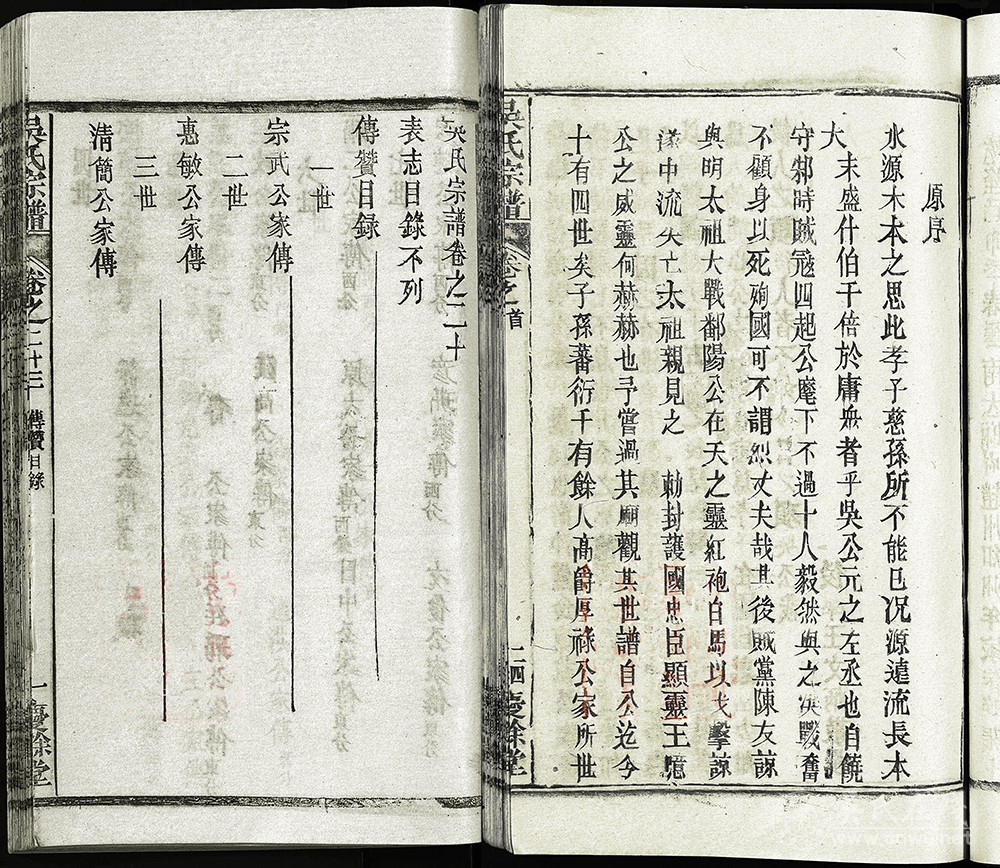 原序
水源木本之思此孝子慈孫所不能已况源遠流長本
大末盛什伯千倍於庸衆者乎吳公元之左丞也自饒
守郡時賊冦四起公麾下不過十人毅然與之戰奮
不顧身以死殉國可不謂烈丈夫哉其後賊黨陳友諒
與明太祖大戰鄱陽公在天之靈紅袍白馬以戈擊諒
中流矢亡太祖親見之 勅封護國忠臣顯靈王
公之威靈何赫赫也予嘗過其廟觀其世譜自公迄今
十有四世矣子孫蕃衍千有餘人高爵厚祿公家所世
吳氏宗譜 卷之首 二四 慶餘堂
吳氏宗譜卷之二十
表志目錄不列
傳贊目録
一世
宗武公家傳
二世
惠敏公家傳
三世
清簡公家傳
吳氏宗譜 卷之二十三 傳贊目錄 一 慶餘堂